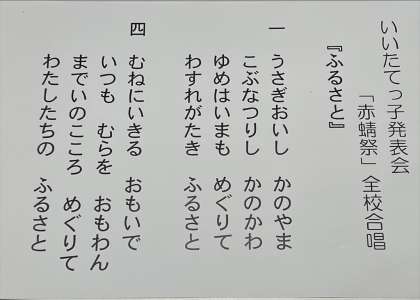 いいたてっ子発表会
「赤蜻祭」全校合唱
『ふるさと』
一 うさぎおいし かのやま
こぶなつりし かのかわ
ゆめはいまも めぐりて
わすれがたき ふるさと
四 むねにいきる おもいで
いつも むらを おもわん
までいのこころ めぐりて
わたしたちの ふるさと